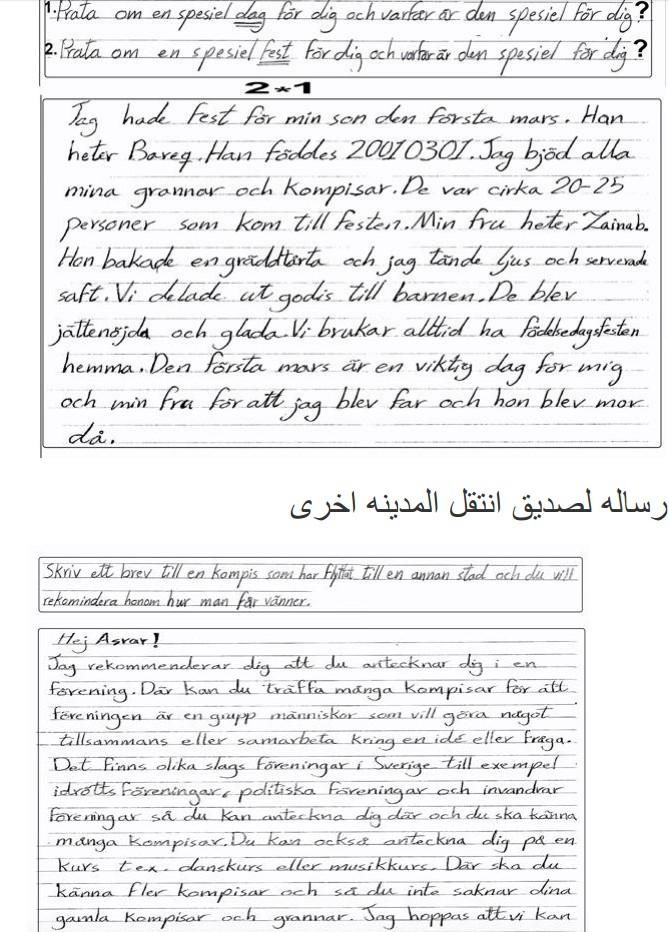 1. Prata om en spesiel dag för dig och varför är den spesiel för dig?
2. Prata om en spesiel fest för dig och varför är den spesiel för dig?
2*1
Jag hade fest för min son den första mars. Han
heter Bareq. Han föddes 20010301. Jag bjöd alla
mina grannar och kompisar. De var cirka 20-25
personer som kom till festen. Min fru heter Zainab.
Hon bakade en gräddtårta och jag tände ljus och serverade
saft. Vi delade ut godis till barnen. De blev
jättenöjda och glada. Vi brukar alltid ha födelsedagsfesten
hemma. Den första mars är en viktig dag för mig
och min fru för att jag blev far och hon blev mor
då.
رساله لصديق انتقل المدينه اخرى
Skriv ett brev till en kompis som har flyttat till en annan stad och du vill
rekomindera honom hur man får vänner.
Hej Asrar!
Jag rekommenderar dig att du antecknar dig i en
förening. Där kan du träffa många kompisar för att
föreningen är en grupp människor som vill göra något
tillsammans eller samarbeta kring en idé eller fråga.
Det finns olika slags föreningar i Sverige till exempel
idrotts föreningar, politiska föreningar och invandrar
föreningar så du kan anteckna dig där och du ska känna
många kompisar. Du kan också anteckna dig på en
kurs t.ex. danskurs eller musikkurs. Där ska du
känna fler kompisar och så du inte saknar dina
gamla kompisar och grannar. Jag hoppas att vi kan